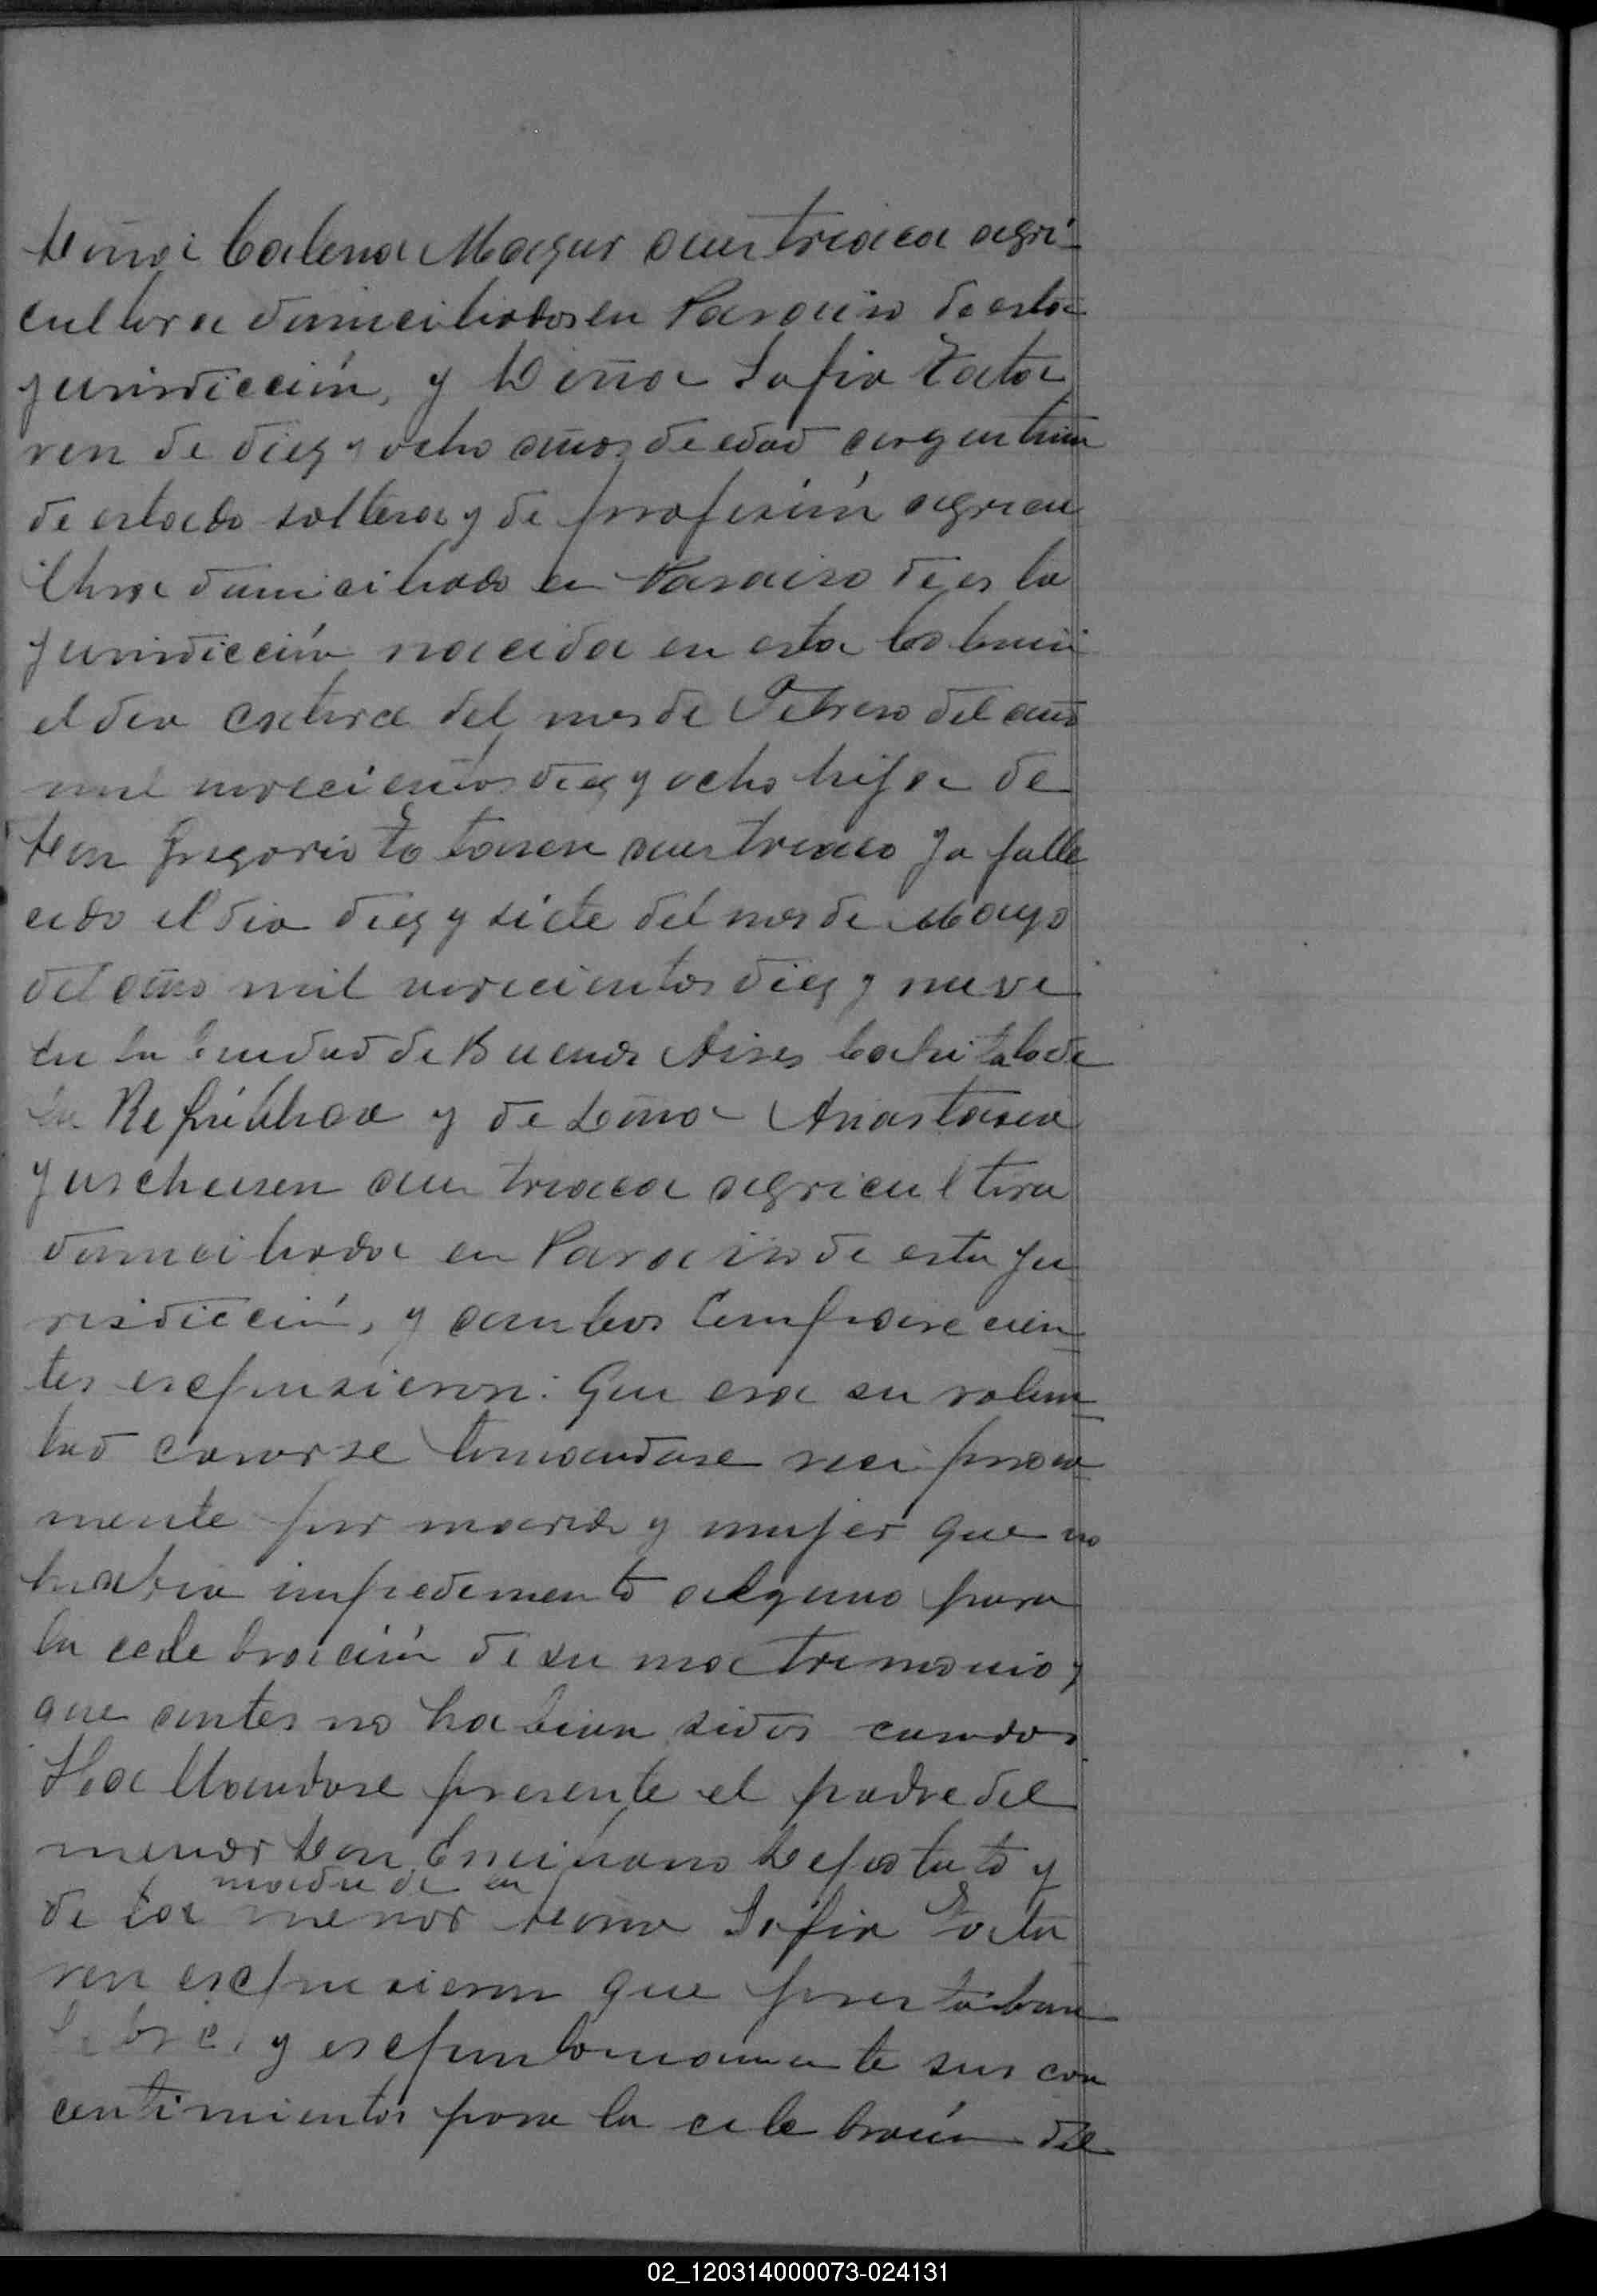 Doña Catena Mazur austriaca agri-
cultora domiciliados en Paraiso de esta
jurisdicción, y Doña Sofia Tata
ren de diez y ocho años de edad argentina
de estado soltera y de profesión agricu
ltora domiciliada en Paraiso de esta
jurisdicción nacida en esta Colonia
el dia catorce del mes de Febrero del año
mil novecientos diez y ocho hija de
Don Gregorio Tataren austriaco ya falle
cido el dia diez y siete del mes de Mayo
del año mil novecientos diez y nueve
en la Ciudad de Buenos Aires Capital de
la República y de Doña Anastasia
domiciliada en Paraiso de esta ju
risdicción, y ambos Comparecien
tes expusieron: Que era su volun
tad casarse tomandose reciproca
mente por marido y mujer que no
habia impedimento alguno para
la celebración de su matrimonio y
que antes no habian sidos casados
Hallandose presente el padre del
menor Don
madre de
de la menor Doña Sofia Tata
ren expusieron que prestaban
libre, y espontaneamente sus con
centimientos para la celebración del
02_120314000073-024131